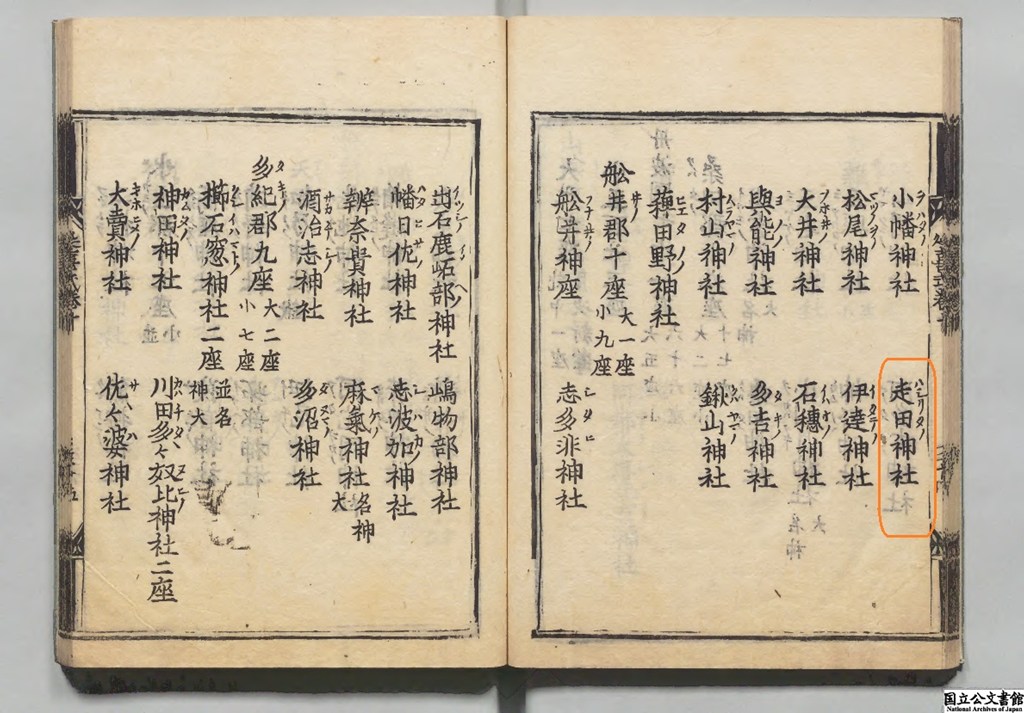 小幡神社 走田神社
松尾神社 伊達神社
大井神社 石穗神社
與能神社 多吉神社
村山神社 鍬山神社
薭田野神社
舩井郡十座 大一座 小九座
舩井神座 志多非神社
出石鹿岾部神社 嶋物部神社
幡日佐神社 志波加神社
幣奈貴神社 麻氣神社 名神大
酒治志神社 多沼神社
多紀郡九座 大二座 小七座
櫛石窓神社二座 並名神大
神田神社 川田多々奴比神社二座
大賣神社 佐々婆神社
国立公文書館
National Archives of Japan